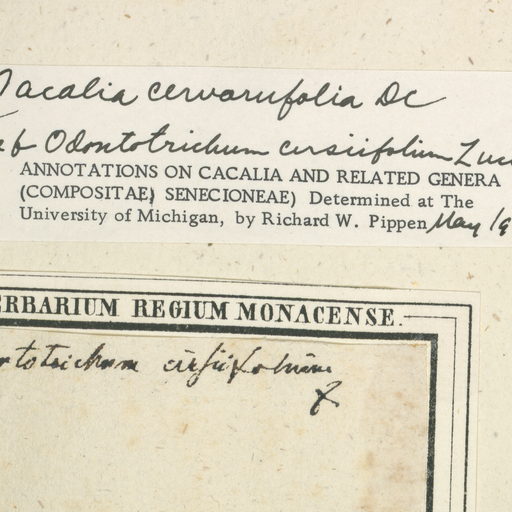 Cacalia cervariifolia DC
Odontotrichum cirsiifolium Zucc
ANNOTATIONS ON CACALIA AND RELATED GENERA
(COMPOSITAE) SENECIONEAE) Determined at The
University of Michigan, by Richard W. Pippen May 19
ERBARIUM REGIUM MONACENSE.
ntotrichum cirsiifolium